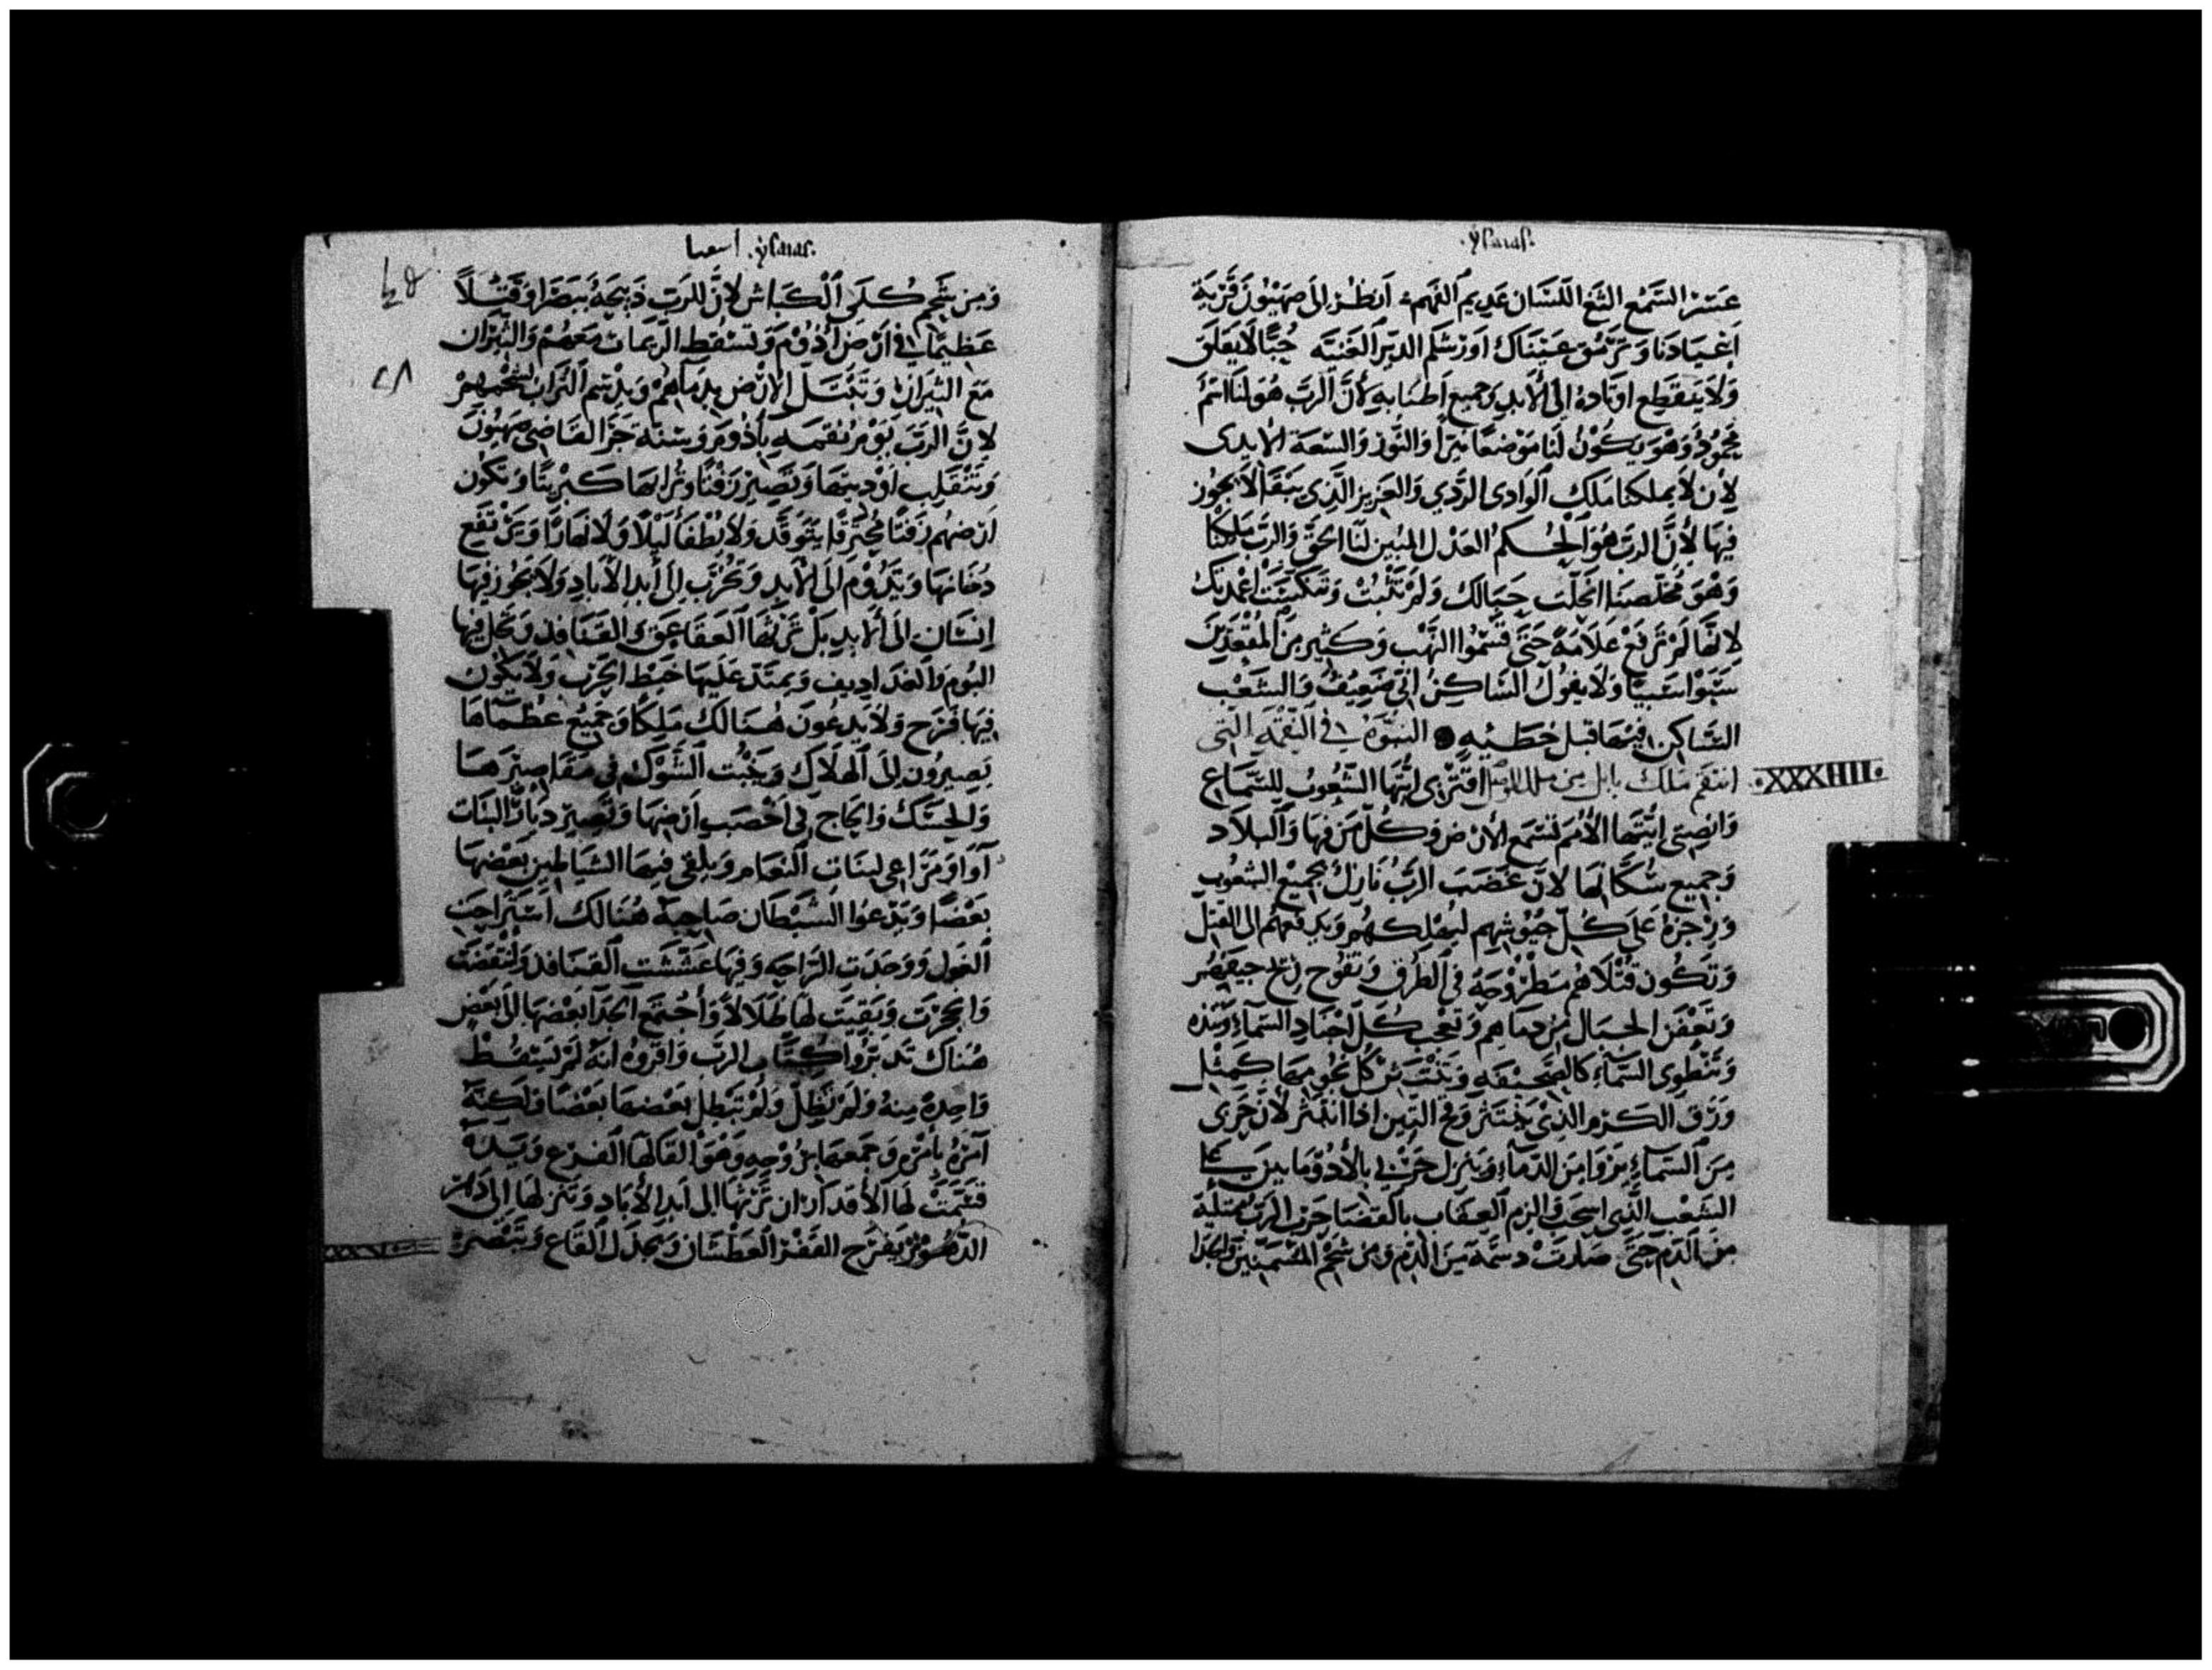 .ysaias.
عسر السمع الثغ اللسان عديم الفهم انظر الى صهيون قرية
اعيادنا وترمق عيناك اورشلم الديرا الغنيه خبًا لا يعلق
ولا ينقطع اوتاده الى الابد وجميع اطنابه لان الرب هو لنا اسم
محمود وهو يكون لنا موضعا نيرا والنور والسعة الابدى
لان لا يملكنا ملك الوادى الردي والعزيز الذي يبقا لا يجوز
فيها لأن الرب هو الحكم العدل المبين لنا الحق والرب ملكنا
وهو مخلصنا انحلت حبالك ولم تثبت وتنكست اعمدتك
لانها لم ترفع علامة حتى قسموا النهب وكثير من المقعدين
سبوا سبيا ولا يقول الساكن انى ضعيف والشعب
الساكن فيها قبل خطئيه النبوة في النقمة التى
انتقم ملك بابل من اقتربى ايتها الشعوب للسماع
.XXXIIII.
وانصتى ايتها الأمم لتسمع الأرض وكل من فيها والبلاد
وجميع سكانها لان غضب الرب نازل بجميع الشعوب
ورجزه على كل جيوشهم ليهلكهم ويدفعهم الى القتل
وتكون قتلاهم مطروحة في الطرق وتفوح ريح جيفهم
وتعفن الجبال من دمايهم وتعجب كل اجناد السماء
وتنطوى السماء كالصحيفه وتنتثر كل نجومها كمثل
ورق الكرم الذي ينتثر وفج التين اذا انتثر لان حربى
من السماء من الدماء وينزل حربي بالأدوماييين
الشعب الذى استحق والزم العقاب بالقضا حرب الرب ممتلية
من الدم حتى صارت دسمة من الدم ومن شحم المسمنين والجدا
اسعيا .ysaias.
ومن شحم كلى الكباش لان للرب ذبيحة ببصرا وقتلاً
عظيما في ارض اذوم وتسقط الريمات معهم والثيران
مع الثيران وتبتل الارض بدمائهم وبدسم التراب لشحمهم
لان الرب يوم نقمه بأذوم وسنة جزا القاضى صهيون
وتنقلب اوديتها وتصير زفتا وترابها كبريتا وتكون
ارضهم زفتا محترقا يتوقد ولا يطفأ ليلا ولا نهارا ويرتفع
دخانها ويدوم الى الابد وتخرب الى أبد الآباد ولا يجوز فيها
انسان الى الابد بل ترثها العقاعق والقنافذ وتحل فيها
البوم والغداديف ويمتد عليها خيط الخرب ولا يكون
فيها فرح ولا يدعون هنالك ملكا وجميع عظماها
يصيرون الى الهلاك وينبت الشوك فى مقاصيرها
والحسك والحاج فى اخصب ارضها وتصير ديارا لبنات
آوا ومراعى لبنات النعام ويلقى فيها الشياطين بعضها
بعضا ويدعوا الشيطان صاحبه هنالك استراحت
الغول ووجدت الراحه وفيها عششت القنافذ وانتفضت
وانجحرت وبقيت لها ظلالا واجتمع الحدآ بعضها الى بعض
هناك تدبروا كتاب الرب واقروه انه لم يسقط
واحدة منه ولم تظل ولم تبطل بعضها بعضا ولكنه
آمره بأمره وجمعها بروحه وهو القا لها القرع ويده
قسمت لها الأقدار ان ترثها الى ابد الأباد وتنزلها الى داهر
الدهور يفرح القفر العطشان ويجدل القاع ويبصر
XXXV